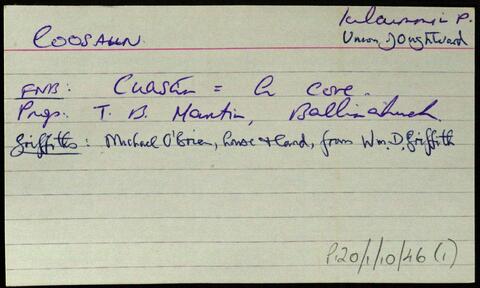 COOSAUN. Kilcummin P.
Union of Oughterard
FNB: Cuasán = a cove.
Prop: T. B. Martin, Ballinahinch.
Griffiths: Michael O'Brien, house & land, from Wm. D. Griffith
P120/1/10/46 (1)